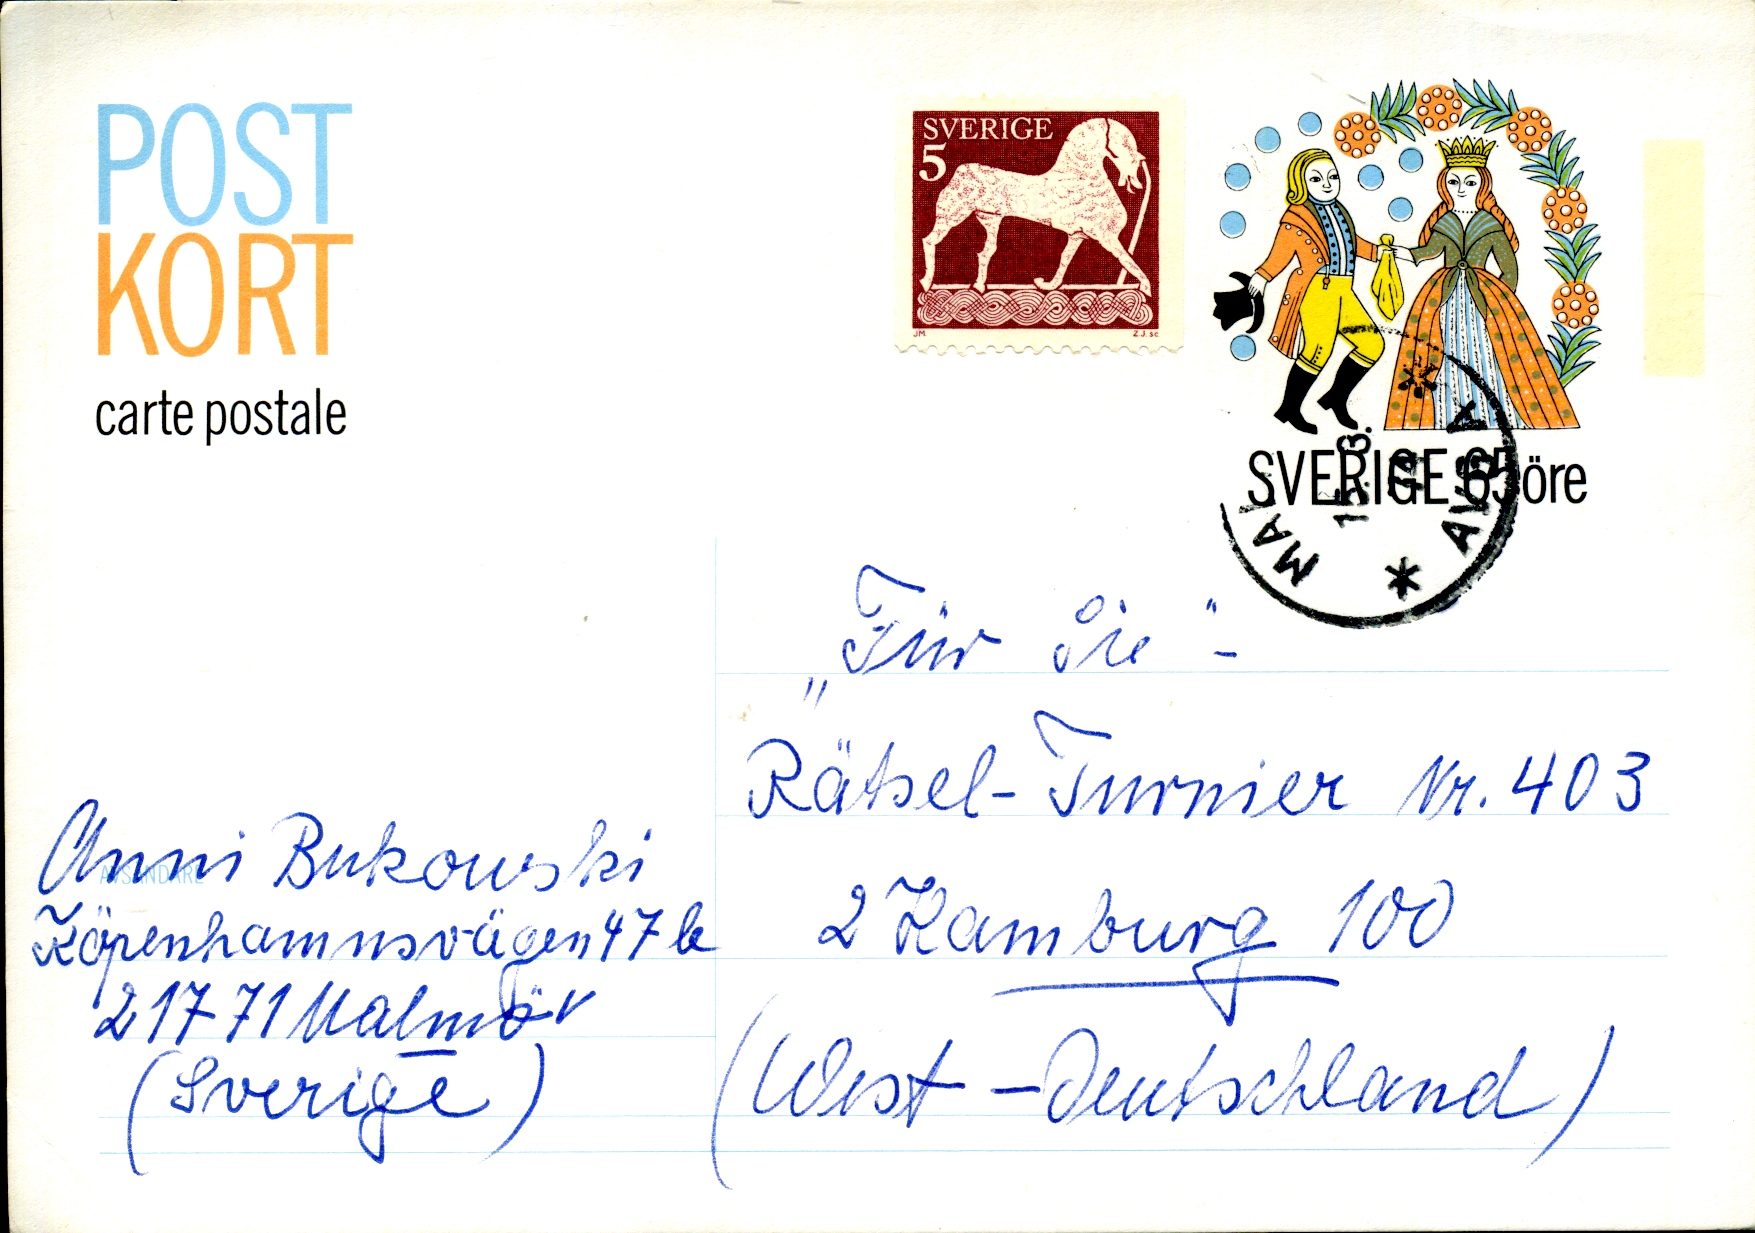 POST
KORT
carte postale
SVERIGE
5
JM.
Z.J. sc
SVERIGE 65 öre
MAL
15. 3.
AVGA
„Für Sie"-
Rätsel-Turnier Nr. 403
2 Hamburg 100
(West-Deutschland)
AVSÄNDARE
Anni Bukowski
Köpenhamnsvägen 47 b
217 71 Malmö v
(Sverige)